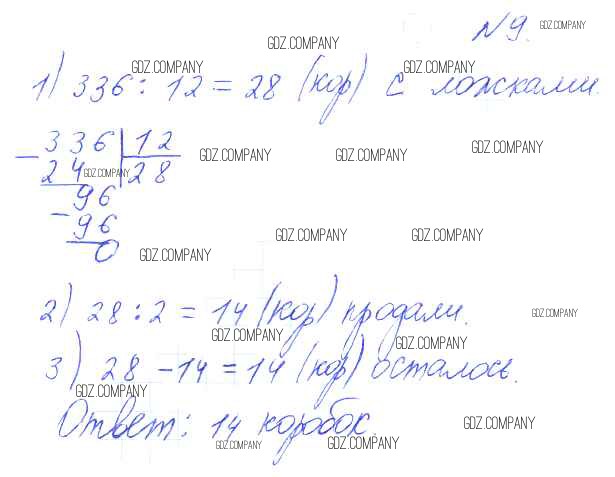 №9. GDZ.COMPANY
GDZ.COMPANY
GDZ.COMPANY GDZ.COMPANY
1) 336 : 12 = 28 (кор) с ложками.
336 | 12
GDZ.COMPANY GDZ.COMPANY GDZ.COMPANY
- 24 | 28 GDZ.COMPANY
96
- 96
0
GDZ.COMPANY GDZ.COMPANY
GDZ.COMPANY
2) 28 : 2 = 14 (кор) продали.
GDZ.COMPANY
GDZ.COMPANY GDZ.COMPANY
3) 28 - 14 = 14 (кор) осталось.
GDZ.COMPANY
Ответ: 14 коробок.
GDZ.COMPANY GDZ.COMPANY GDZ.COMPANY